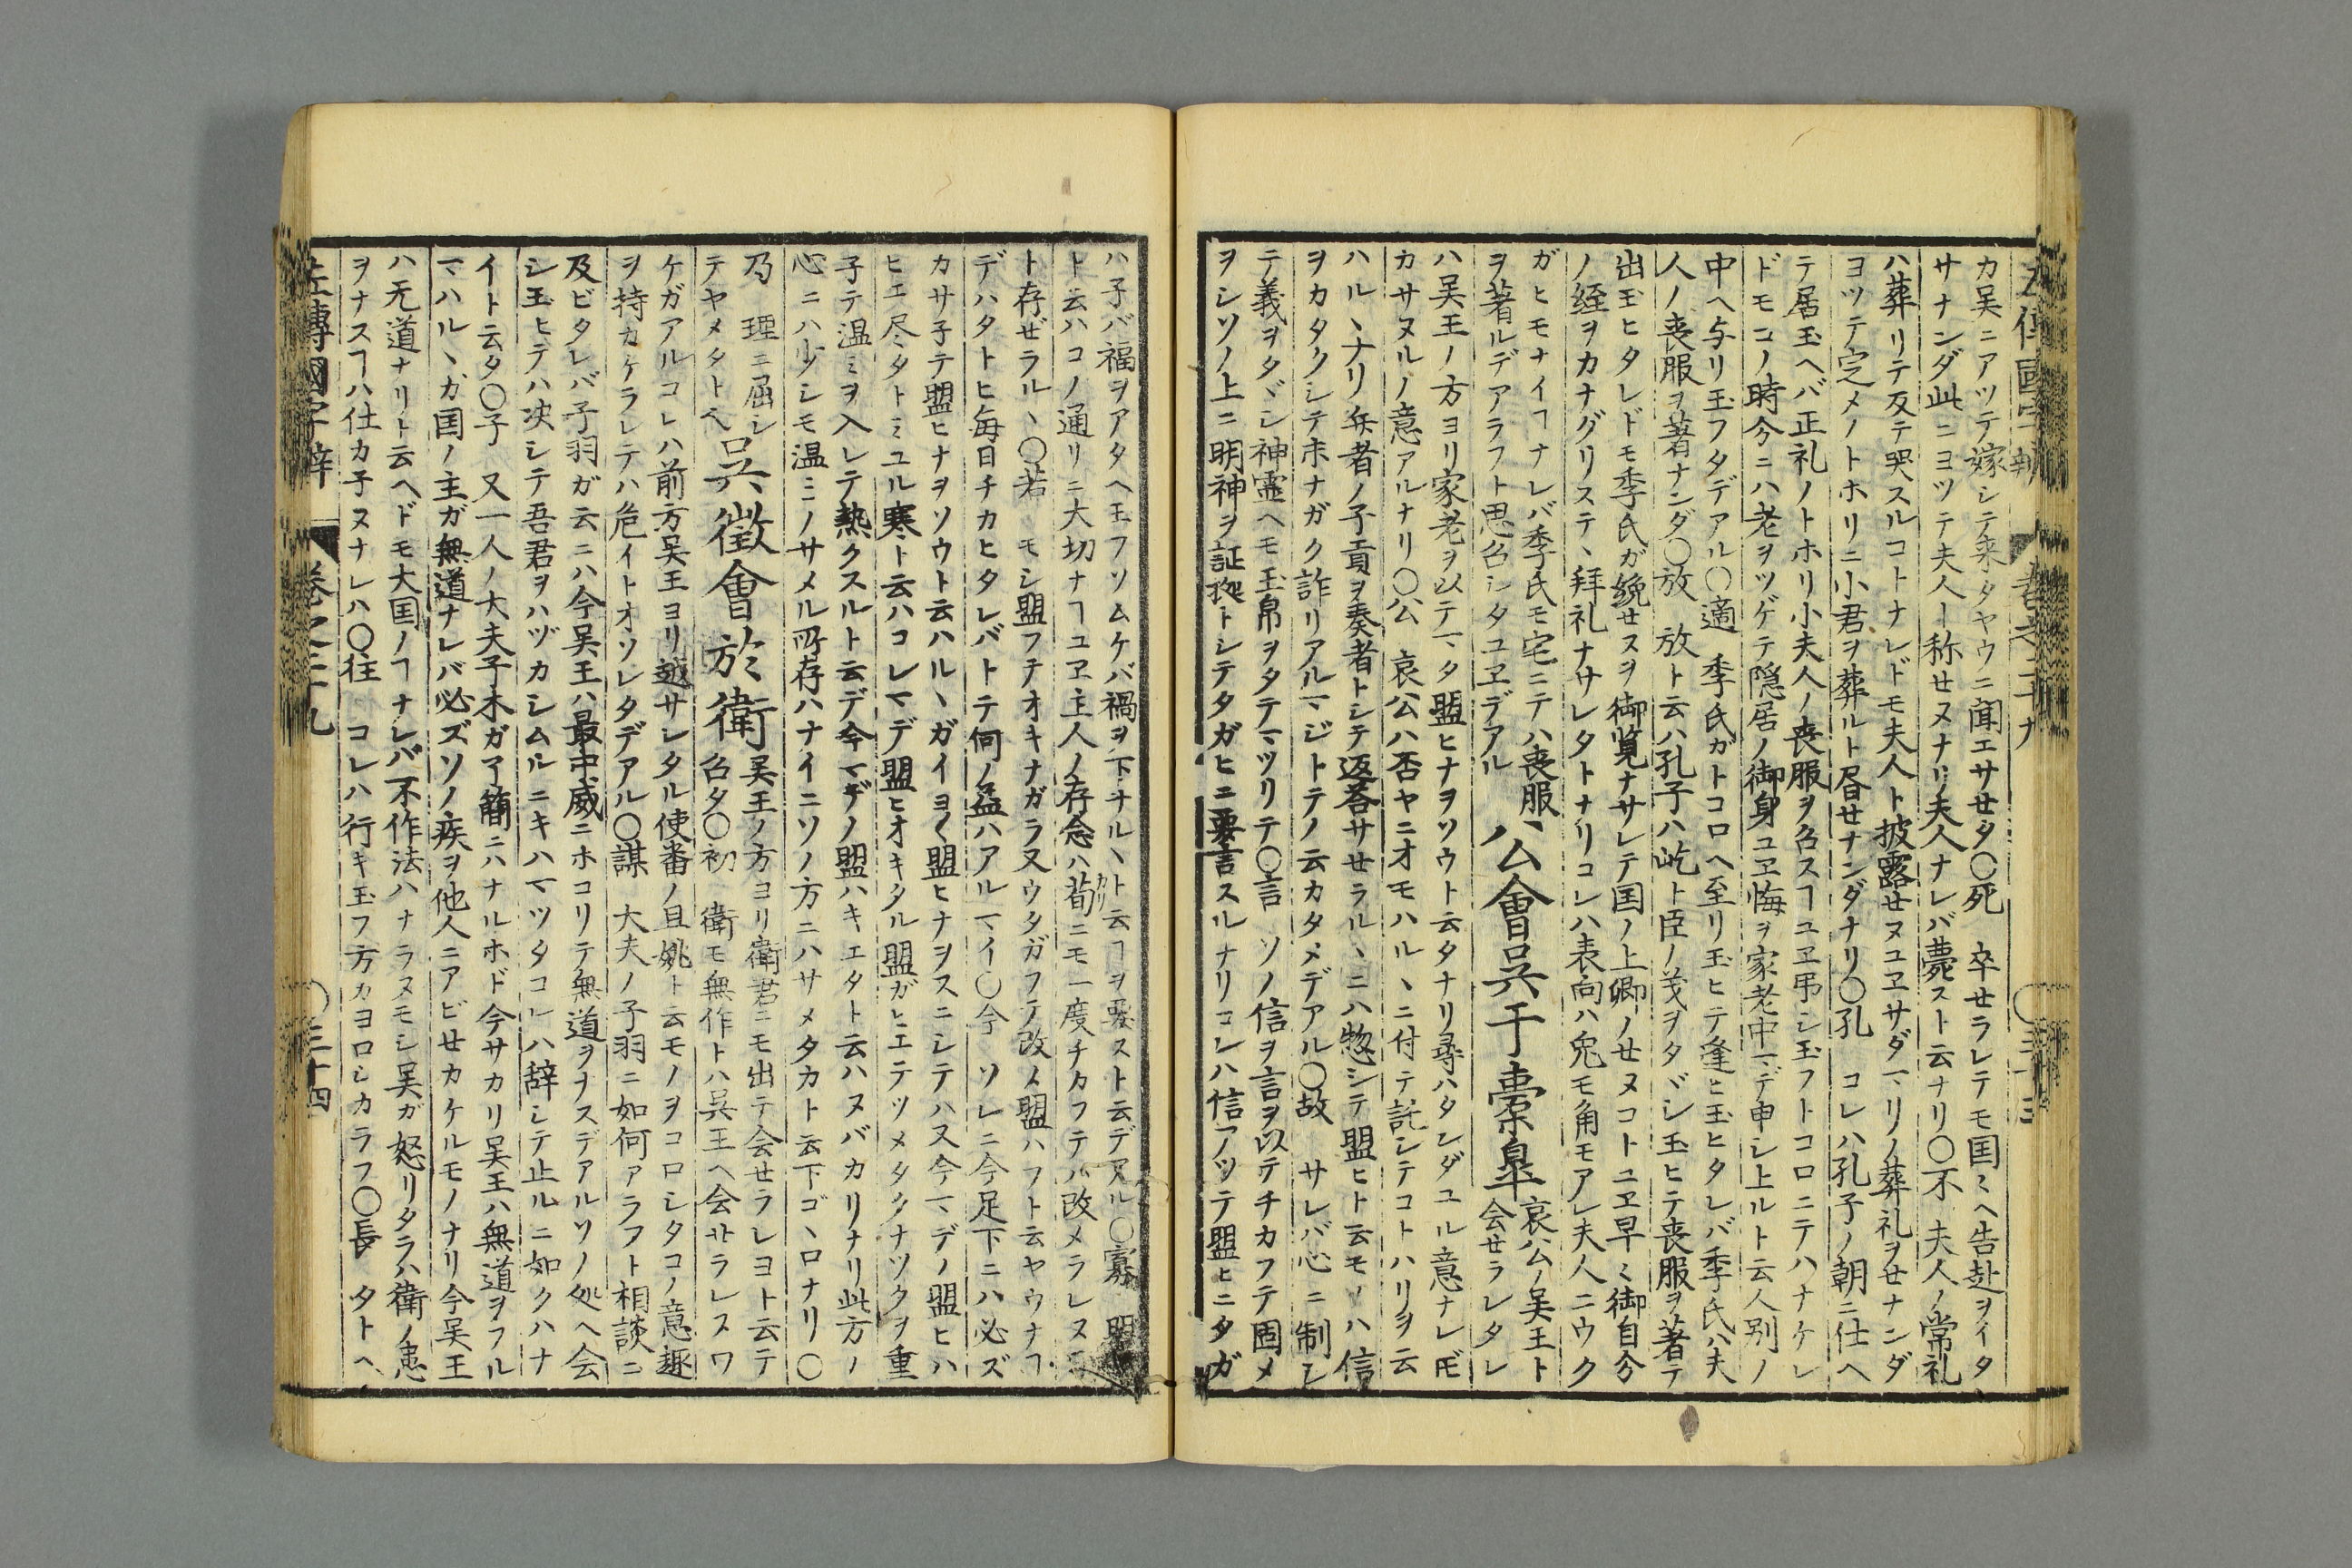 カ呉ニアツテ嫁シテ来タヤウニ聞エサセタ〇死 卒せラレテモ国〻ヘ告赴ヲイタ
サナンダ此ニヨツテ夫人ト称せヌナリ夫人ナレバ薨スト云ナリ〇不 夫人ノ常礼
ハ葬リテ反テ哭スルコトナレドモ夫人ト披露せヌユヱサダマリノ葬礼ヲせナンダ
ヨツテ定メノトホリニ小君ヲ葬ルト昏せナンダナリ〇孔 コレハ孔子ノ朝ニ仕ヘ
テ居玉ヘバ正礼ノトホリ小夫人ノ喪服ヲ召スヿユヱ弔シ玉フトコロニテハナケレ
ドモコノ時今ニハ老ヲツゲテ隠居ノ御身ユヱ悔ヲ家老中マデ申シ上ルト云人別ノ
中ヘ与リ玉フタデアル〇適 季氏ガトコロヘ至リ玉ヒテ逢ヒ玉ヒタレバ季氏ハ夫
人ノ喪服ヲ著ナンダ〇放 放ト云ハ孔子ハ屹ト臣ノ義ヲタヾシ玉ヒテ喪服ヲ著テ
出玉ヒタレドモ季氏ガ絻せスヲ御覧ナサレテ国ノ上卿ノせヌコトユヱ早〻御自分
ノ絰ヲカナグリステヽ拜礼ナサレタトナリコレハ表向ハ兔モ角モアレ夫人ニウク
ガヒモナイヿナレバ季氏モ宅ニテハ喪服
ヲ著ルデアラフト思召シタユヱデアル
公會呉于橐皐
哀公ノ呉王ト
会せラレタレ
ハ呉王ノ方ヨリ家老ヲ以テマタ盟ヒナヲソウト云タナリ尋ハタシダユル意ナレ𪜈
カサヌルノ意アルナリ〇公 哀公ハ否ヤニオモハルヽニ付テ託シテコトハリヲ云
ハルヽナリ使者ノ子貢ヲ奏者トシテ返答サせラルヽニハ惣シテ盟ヒト云モノハ信
ヲカタクシテ末ナガク詐リアルマジトテノ云カタメデアル〇故 サレバ心ニ制シ
テ義ヲタヾシ神靈ヘモ玉帛ヲタテマツリテ〇言 ソノ信ヲ言ヲ以テチカフテ固メ
ヲシソノ上ニ明神ヲ証拠トシテタガヒニ要言スルナリコレハ信アツテ盟ヒニタガ
ハ子バ福ヲアタヘ玉フソムケバ禍ヲ下サルヽト云ヿヲ要スト云デアル〇寡
ト云ハコノ通リニ大切ナヿユヱ主人ノ存念ハ苟ニモ一度チカフテハ改メラレヌ
ト存ぜラルヽ〇若 モシ盟フテオキナガラ又ウタガフテ改メ盟ハフト云ヤウナヿ
デハタトヒ毎日チカヒタレバトテ何ノ益ハアルマイ〇今 ソレニ今足下ニハ必ズ
カサ子テ盟ヒナヲソウト云ハルヽガイヨ〱盟ヒナヲスニシテハ又今マデノ盟ヒハ
ヒエ尽タトミユル寒ト云ハコレマデ盟ヒオキタル盟ガヒエテツメタクナツタヲ重
子テ温ミヲ入レテ熱クスルト云デ今マデノ盟ハキエタト云ハヌバカリナリ此方ノ
心ニハ少シモ温ミノサメル所存ハナイニソノ方ニハサメタカト云下ゴヽロナリ〇
乃 理ニ屈シ
テヤメタトベ
呉徵會於衛
呉王ノ方ヨリ衛君ニモ出テ会せラレヨト云テ
召タ〇初 衛モ無作トハ呉王ヘ会サラレスワ
ケガアルコレハ前方呉王ヨリ越サレタル使番ノ且姚ト云モノヲコロシタコノ意趣
ヲ持カケラレテハ危イトオソレタデアル〇謀 大夫ノ子羽ニ如何アラフト相談ニ
及ビタレバ子羽ガ云ニハ今呉王ハ最中威ニホコリテ無道ヲナスデアルソノ処ヘ会
シ玉ヒテハ决シテ吾君ヲハヅカシムルニキハマツタコレハ辞シテ止ルニ如クハナ
イト云タ〇子 又一人ノ大夫子木ガ了簡ニハナルホド今サカリ呉王ハ無道ヲフル
マハルヽガ国ノ主ガ無道ナレバ必ズソノ疾ヲ他人ニアビせカケルモノナリ今呉王
ハ无道ナリト云ヘドモ大国ノヿナレバ不作法ハナラヌモシ呉ガ怒リタラハ衛ノ患
ヲナスヿハ仕カ子ヌナレハ〇往 コレハ行キ玉フ方カヨロシカラフ〇長 タトヘ
左傳國字辯 卷之十九 〇三十四